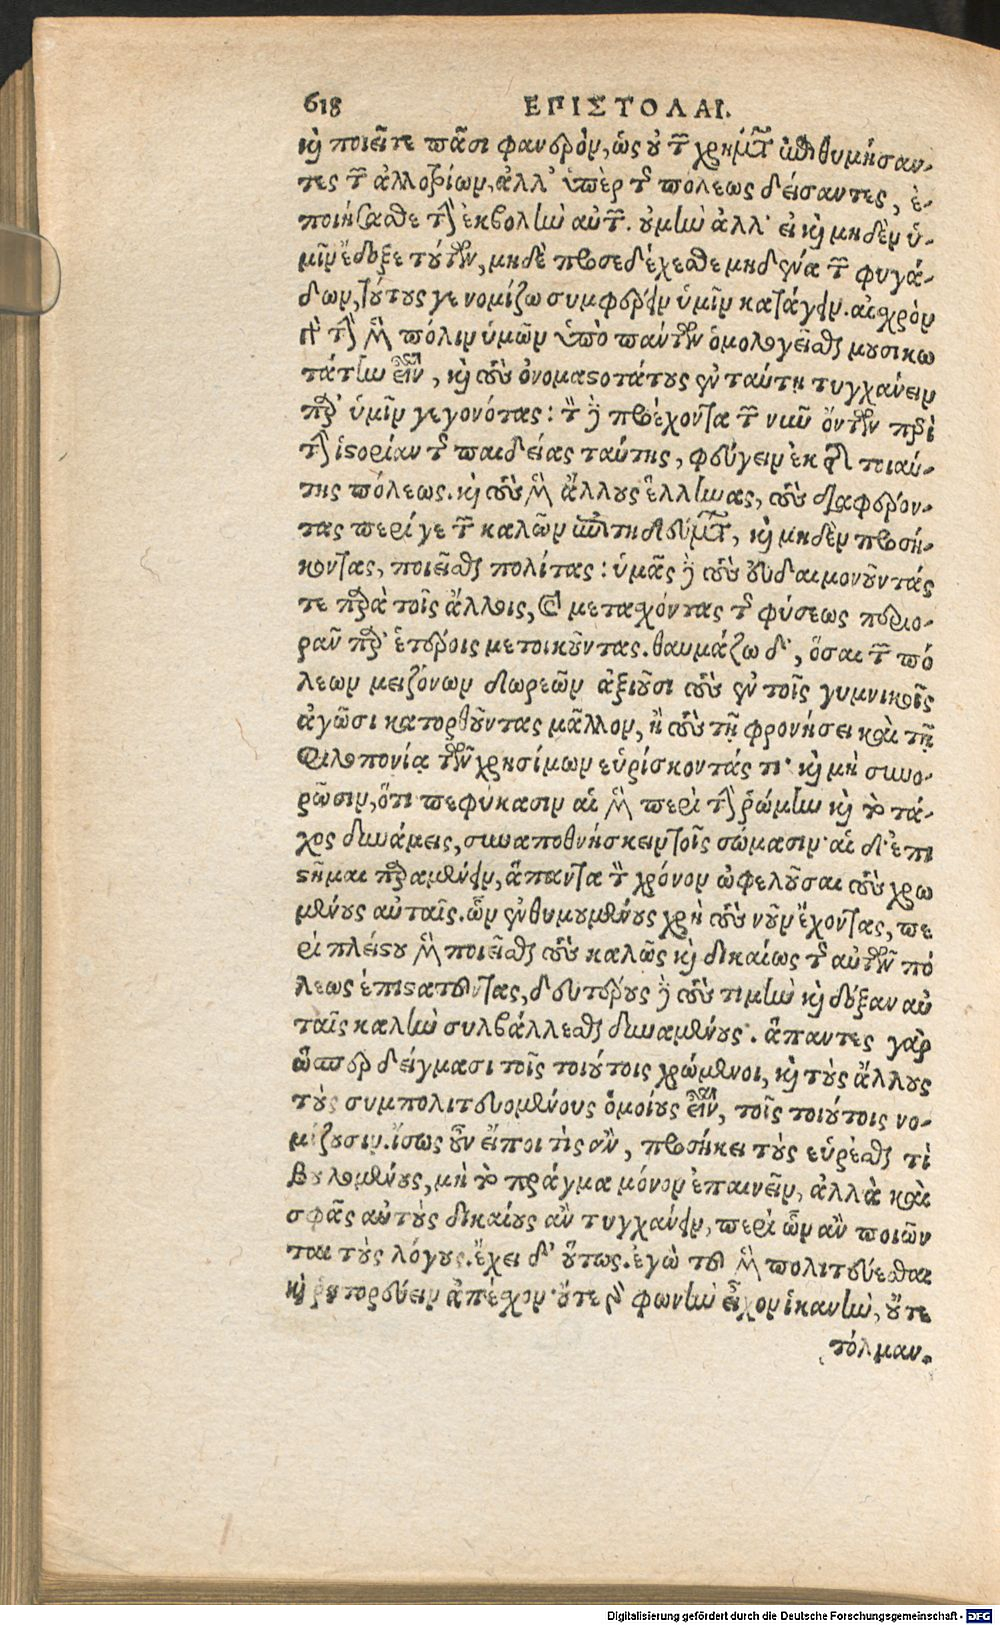 618 ΕΠΙΣΤΟΛΑΙ.
καὶ ποιεῖτε πᾶσι φανερὸν, ὡς οὐ τῶν χρημάτων ἐπιθυμήσαν-
τες τῶν ἀλλοτρίων, ἀλλ' ὑπὲρ τῆς πόλεως δείσαντες, ἐ-
ποιήσασθε τὴν ἐκβολὴν αὐτῶν. οὐ μὴν ἀλλ' εἰ καὶ μηδὲν ὑ-
μῖν ἔδοξε τούτων, μηδὲ προσεδέχεσθε μηδένα τῶν φυγά-
δων, τούτους γε νομίζω συμφέρειν ὑμῖν κατάγειν. αἰσχρὸν
γὰρ τὴν μὲν πόλιν ὑμῶν ὑπὸ πάντων ὁμολογεῖσθαι μουσικω
τάτην εἶναι, καὶ τοὺς ὀνομαστοτάτους ἐν ταύτῃ τυγχάνειν
παρ' ὑμῖν γεγονότας: τὸν δὲ προέχοντα τῶν νῦν ὄντων περὶ
τὴν ἱστορίαν τῆς παιδείας ταύτης, φεύγειν ἐκ τῆς τοιαύ-
της πόλεως. καὶ τοὺς μὲν ἄλλους ἕλληνας, τοὺς διαφέρον-
τας περί γε τῶν καλῶν ἐπιτηδευμάτων, καὶ μηδὲν προσή-
κοντας, ποιεῖσθαι πολίτας: ὑμᾶς δὲ τοὺς εὐδαιμονοῦντάς
τε παρὰ τοῖς ἄλλοις, καὶ μετασχόντας τῆς φύσεως περιο-
ρᾶν παρ' ἑτέροις μετοικοῦντας. θαυμάζω δ', ὅσαι τῶν πό
λεων μειζόνων δωρεῶν ἀξιοῦσι τοὺς ἐν τοῖς γυμνικοῖς
ἀγῶσι κατορθοῦντας μᾶλλον, ἢ τοὺς τῇ φρονήσει καὶ τῇ
φιλοπονίᾳ τῶν χρησίμων εὑρίσκοντάς τι· καὶ μὴ συνο-
ρῶσιν, ὅτι πεφύκασιν αἱ μὲν περὶ τὴν ῥώμην καὶ τὸ τά-
χος δυνάμεις, συναποθνήσκειν τοῖς σώμασιν· αἱ δ' ἐπι
στῆμαι παραμένειν, ἅπαντα τὸν χρόνον ὠφελοῦσαι τοὺς χρω
μένους αὐταῖς. ὧν ἐνθυμουμένους χρὴ τοὺς νοῦν ἔχοντας, πε
ρὶ πλείστου μὲν ποιεῖσθαι τοὺς καλῶς καὶ δικαίως τῆς αὑτῶν πό
λεως ἐπιστατοῦντας, δευτέρους δὲ τοὺς τιμὴν καὶ δόξαν αὐ
ταῖς καλὴν συλβάλλεσθαι δυναμένους. ἅπαντες γὰρ
ὥσπερ δείγμασι τοῖς τοιούτοις χρώμενοι, καὶ τοὺς ἄλλους
τοὺς συμπολιτευομένους ὁμοίους εἶναι, τοῖς τοιούτοις νο-
μίζουσιν. ἴσως οὖν εἴποι τὶς ἂν, προσήκει τοὺς εὑρέσθαι τὶ
βουλομένους, μὴ τὸ πράγμα μόνον ἐπαινεῖν, ἀλλὰ καὶ
σφᾶς αὐτοὺς δικαίους ἂν τυγχάνειν, περὶ ὧν ἂν ποιῶν
ται τοὺς λόγους. ἔχει δ' οὕτως. ἐγὼ τοῦ μὲν πολιτεύεσθαι
καὶ ῥητορεύειν ἀπέσχον· οὔτε γὰρ φωνὴν εἶχον ἱκανὴν, οὔτε
τόλμαν.
Digitalisierung gefördert durch die Deutsche Forschungsgemeinschaft - DFG